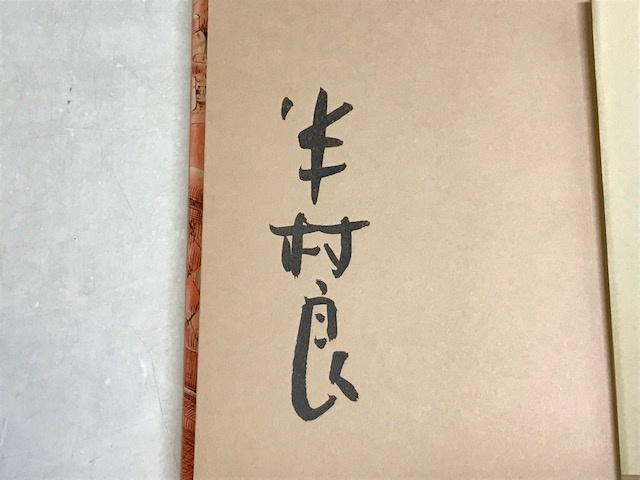 半村良